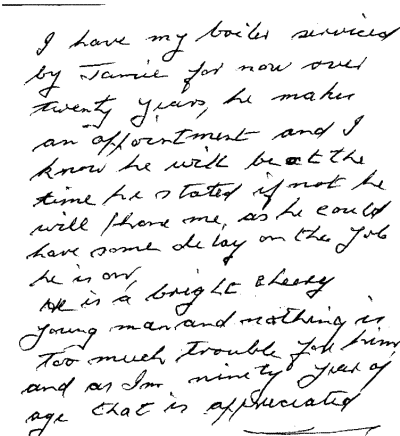 I have my boiler serviced
by Jamie for now over
twenty years, he makes
an appointment and I
know he will be at the
time he stated if not he
will phone me, as he could
have some delay on the job
he is on,
He is a bright cheery
young man and nothing is
too much trouble for him
and as Im ninety year of
age that is appreciated